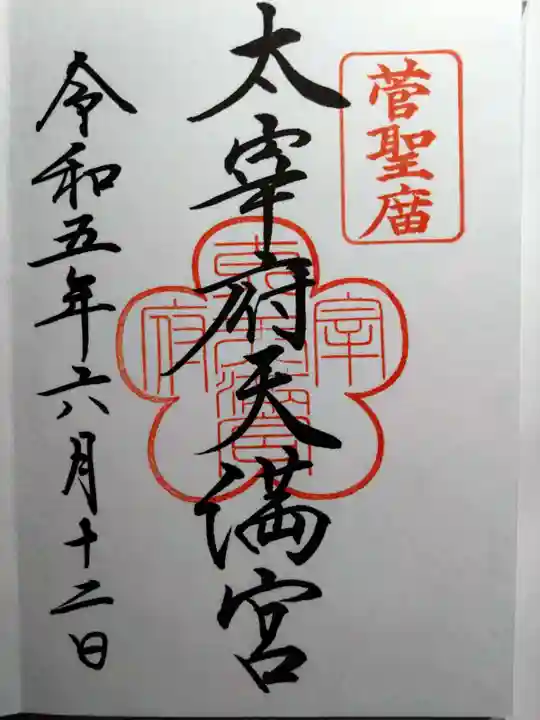 菅聖庿
太宰府天満宮
宰
府
令和五年六月十二日